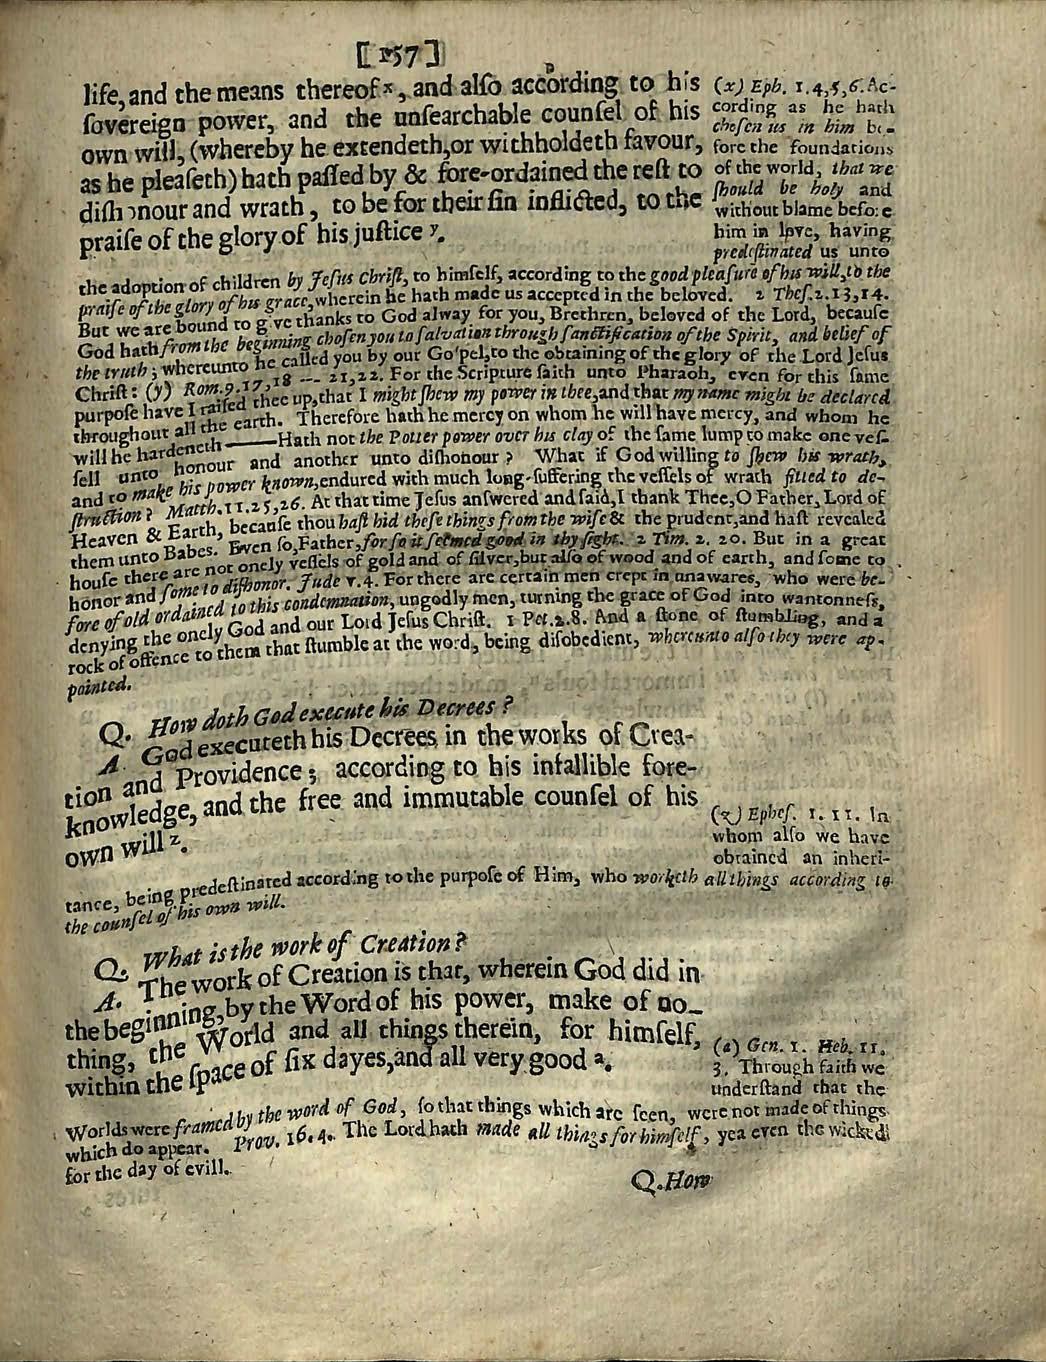 [157]
life, and the means thereof ˣ, and alſo according to his
ſovereign power, and the unſearchable counſel of his
own will, (whereby he extendeth, or withholdeth favour,
as he pleaſeth) hath paſſed by & fore-ordained the reſt to
diſhonour and wrath, to be for their ſin inflicted, to the
praiſe of the glory of his juſtice ʸ.
(x) Eph. 1.4,5,6. Ac-
cording as he hath
choſen us in him be-
fore the foundations
of the world, that we
ſhould be holy and
without blame before
him in love, having
predeſtinated us unto
the adoption of children by Jeſus Chriſt, to himſelf, according to the good pleaſure of his will, to the
praiſe of the glory of his grace, wherein he hath made us accepted in the beloved. 2 Theſ. 2. 13, 14.
But we are bound to give thanks to God alway for you, Brethren, beloved of the Lord, becauſe
God hath from the beginning choſen you to ſalvation through ſanctification of the Spirit, and belief of
the truth; whereunto he called you by our Goſpel, to the obtaining of the glory of the Lord Jeſus
Chriſt: (y) Rom. 9. 17, 18 --- 21, 22. For the Scripture ſaith unto Pharaoh, even for this ſame
purpoſe have I raiſed thee up, that I might ſhew my power in thee, and that my name might be declared
throughout all the earth. Therefore hath he mercy on whom he will have mercy, and whom he
will he hardeneth ——— Hath not the Potter power over his clay of the ſame lump to make one veſ-
ſell unto honour and another unto diſhonour? What if God willing to ſhew his wrath,
and to make his power known, endured with much long-ſuffering the veſſels of wrath fitted to de-
ſtruction? Matth. 11. 25, 26. At that time Jeſus anſwered and ſaid, I thank Thee, O Father, Lord of
Heaven & Earth, becauſe thou haſt hid theſe things from the wiſe & the prudent, and haſt revealed
them unto Babes. Even ſo, Father, for ſo it ſeemed good in thy ſight. 2 Tim. 2. 20. But in a great
houſe there are not onely veſſels of gold and of ſilver, but alſo of wood and of earth, and ſome to
honor and ſome to diſhonor. Jude v. 4. For there are certain men crept in unawares, who were be-
fore of old ordained to this condemnation, ungodly men, turning the grace of God into wantonneſs,
denying the onely God and our Lord Jeſus Chriſt. 1 Pet. 2. 8. And a ſtone of ſtumbling, and a
rock of offence to them that ſtumble at the word, being diſobedient, whereunto alſo they were ap-
pointed.
Q. How doth God execute his Decrees?
A. God executeth his Decrees in the works of Crea-
tion and Providence; according to his infallible fore-
knowledge, and the free and immutable counſel of his
own will ᶻ.
(z) Epheſ. 1. 11. In
whom alſo we have
obtained an inheri-
tance, being predeſtinated according to the purpoſe of Him, who worketh all things according to
the counſel of his own will.
Q. What is the work of Creation?
A. The work of Creation is that, wherein God did in
the beginning, by the Word of his power, make of no-
thing, the World and all things therein, for himſelf,
within the ſpace of ſix dayes, and all very good ᵃ.
(a) Gen. 1. Heb. 11.
3. Through faith we
underſtand that the
Worlds were framed by the word of God, ſo that things which are ſeen, were not made of things
which do appear. Prov. 16. 4. The Lord hath made all things for himſelf, yea even the wicked
for the day of evill.
Q. How